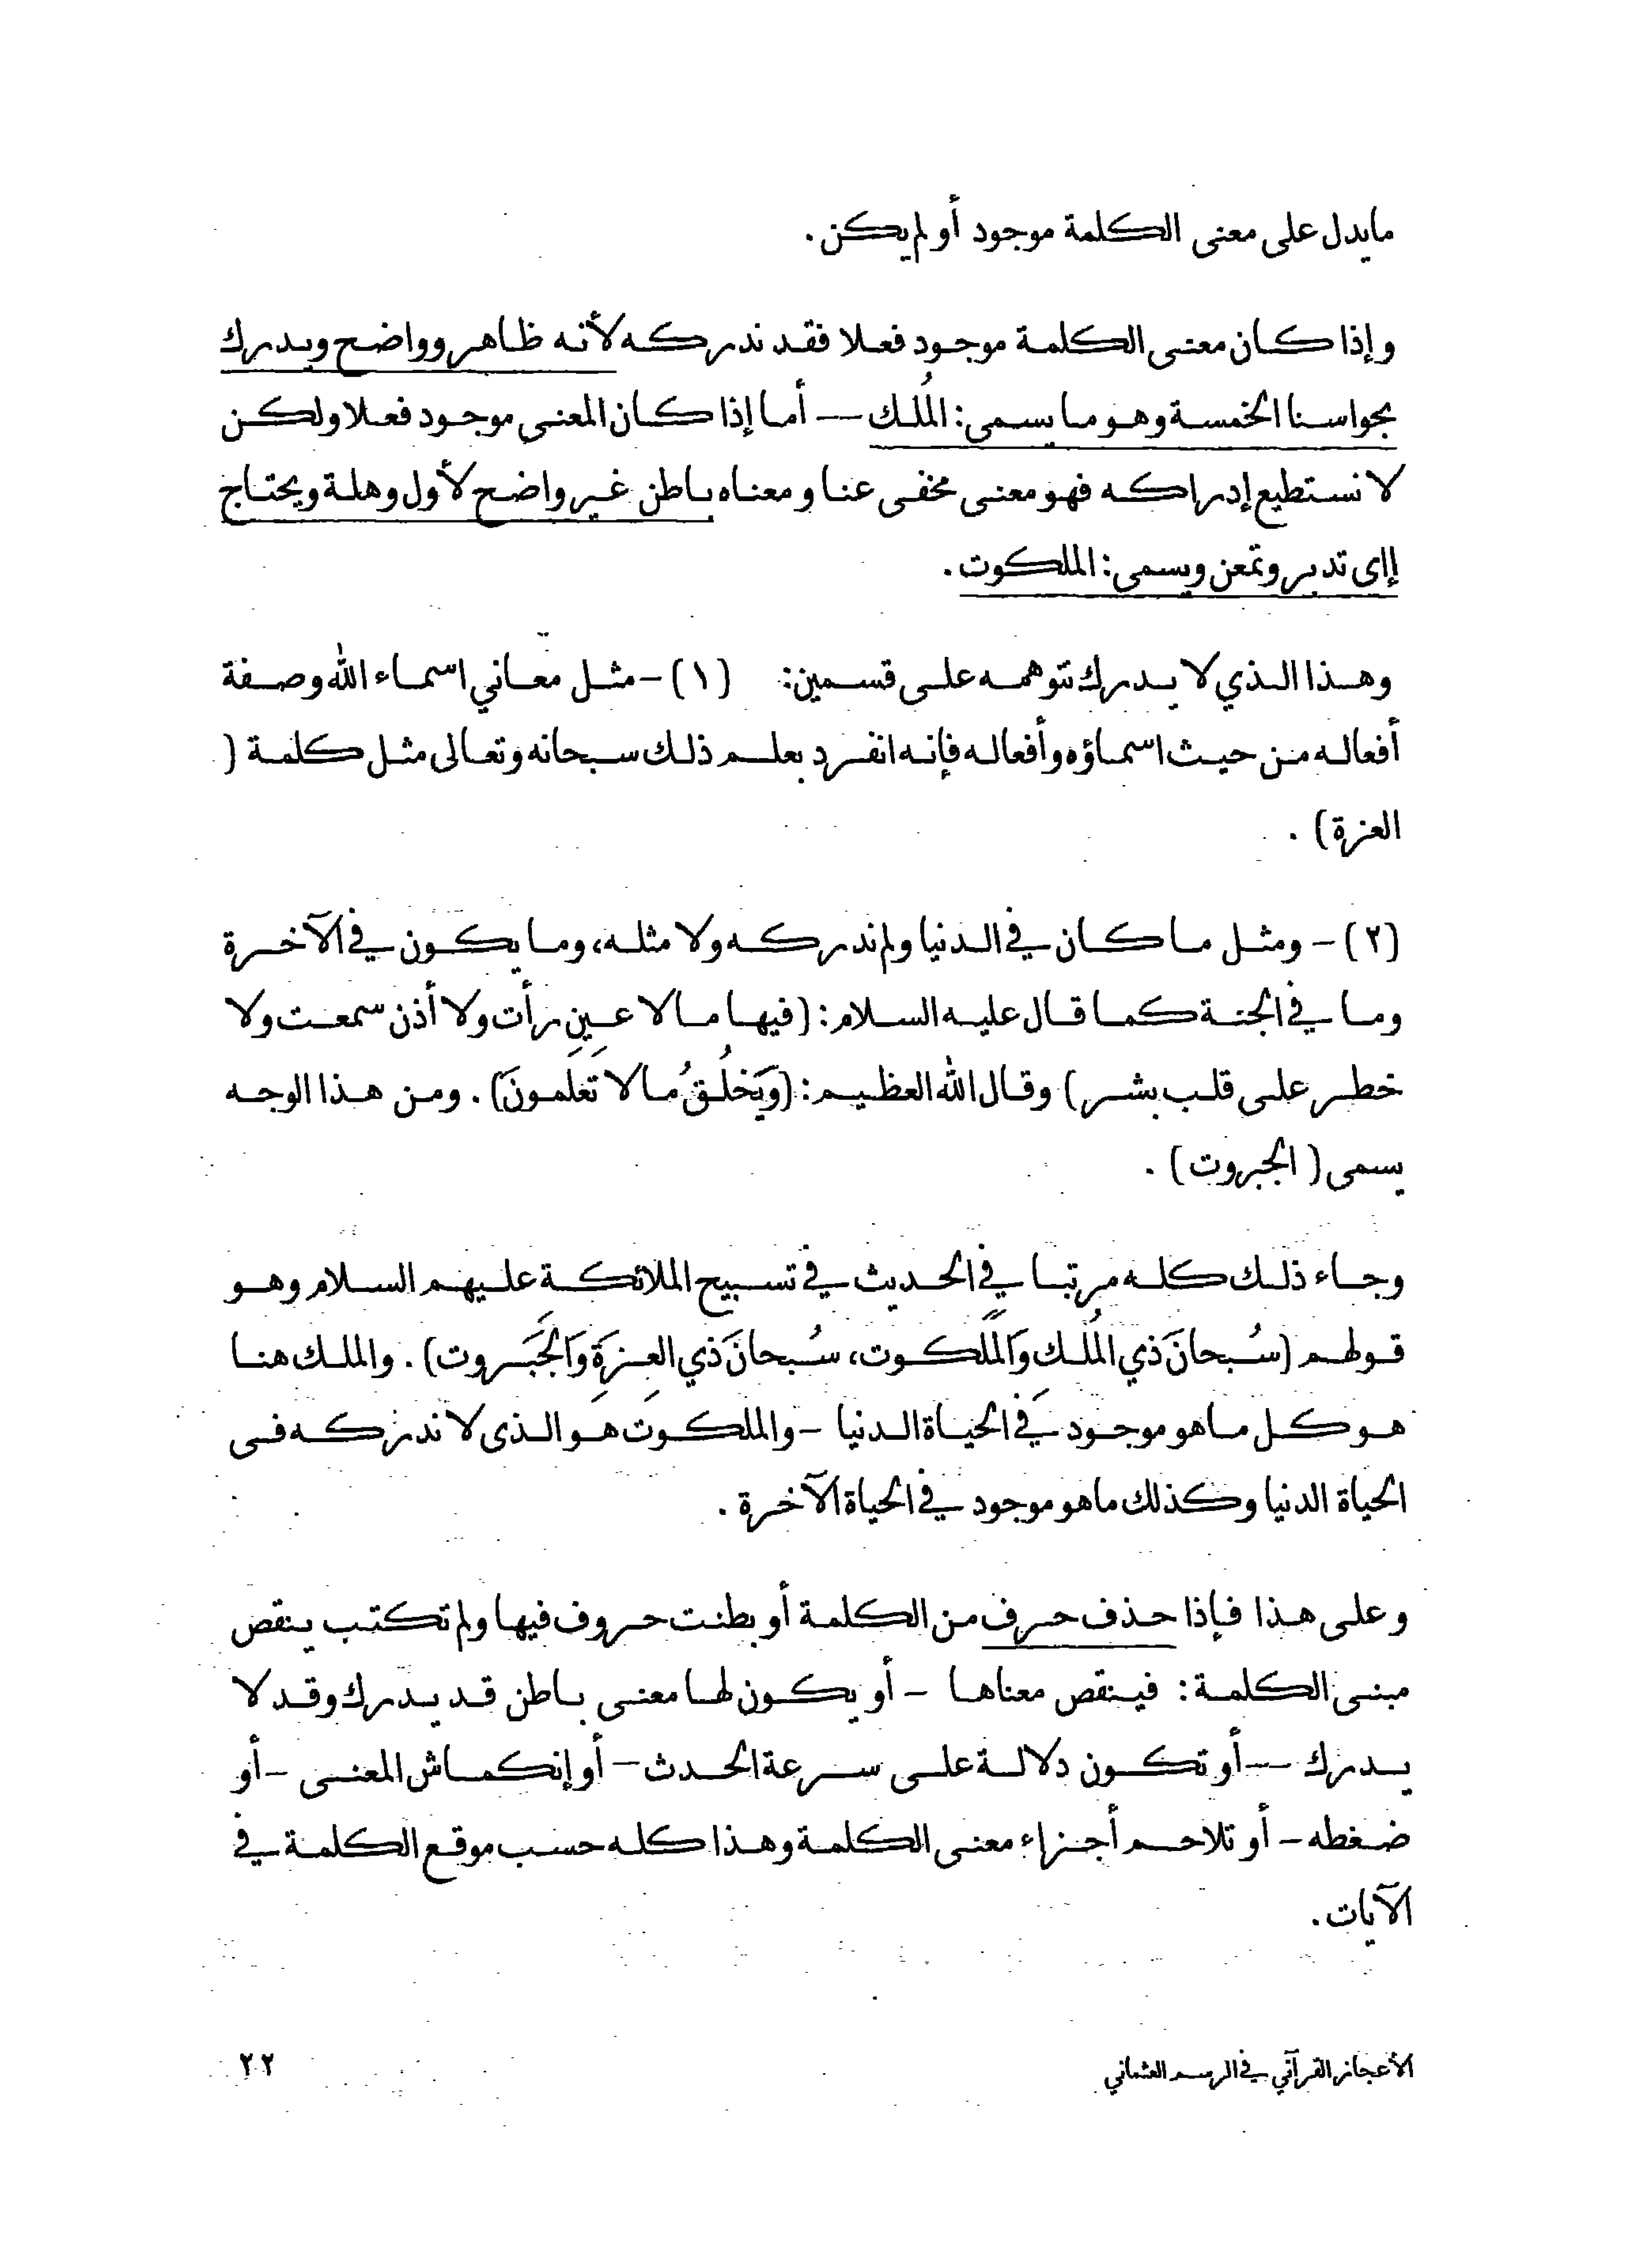 مايدل على معنى الكلمة موجود أو لم يكن.
وإذا كان معنى الكلمة موجود فعلا فقد ندركه لأنه ظاهر وواضح ويدرك
بحواسنا الخمسة وهو ما يسمى: المُلك — أما إذا كان المعنى موجود فعلا ولكن
لا نستطيع إدراكه فهو معنى مخفى عنا ومعناه باطن غير واضح لأول وهلة ويحتاج
إلى تدبر وتمعن ويسمى: الملكوت.
وهذا الذي لا يدرك نتوهمه على قسمين: (١) - مثل معاني اسماء الله وصفة
أفعاله من حيث اسماؤه وأفعاله فإنه انفرد بعلم ذلك سبحانه وتعالى مثل كلمة (
العزة) .
(٢) - ومثل ما كان في الدنيا ولم ندركه ولا مثله، وما يكون في الآخرة
وما في الجنة كما قال عليه السلام: (فيها ما لا عين رأت ولا أذن سمعت ولا
خطر على قلب بشر) وقال الله العظيم: (وَيَخلُقُ مالا تَعلَمونَ). ومن هذا الوجه
يسمى ( الجبروت ) .
وجاء ذلك كله مرتبا في الحديث في تسبيح الملائكة عليهم السلام وهو
قولهم (سُبحانَ ذي المُلكِ وَالمَلَكوت، سُبحانَ ذي العِزةِ وَالجَبَروت). والملك هنا
هو كل ما هو موجود في الحياة الدنيا - والملكوت هو الذى لا ندركه فى
الحياة الدنيا وكذلك ما هو موجود في الحياة الآخرة .
وعلى هذا فإذا حذف حرف من الكلمة أو بطنت حروف فيها ولم تكتب ينقص
مبنى الكلمة: فينقص معناها - أو يكون لها معنى باطن قد يدرك وقد لا
يدرك — أو تكون دلالة على سرعة الحدث - أو إنكماش المعنى - أو
ضغطه - أو تلاحم أجزاء معنى الكلمة وهذا كله حسب موقع الكلمة في
الآيات.
الأعجاز القرآني في الرسم العثماني
٢٢